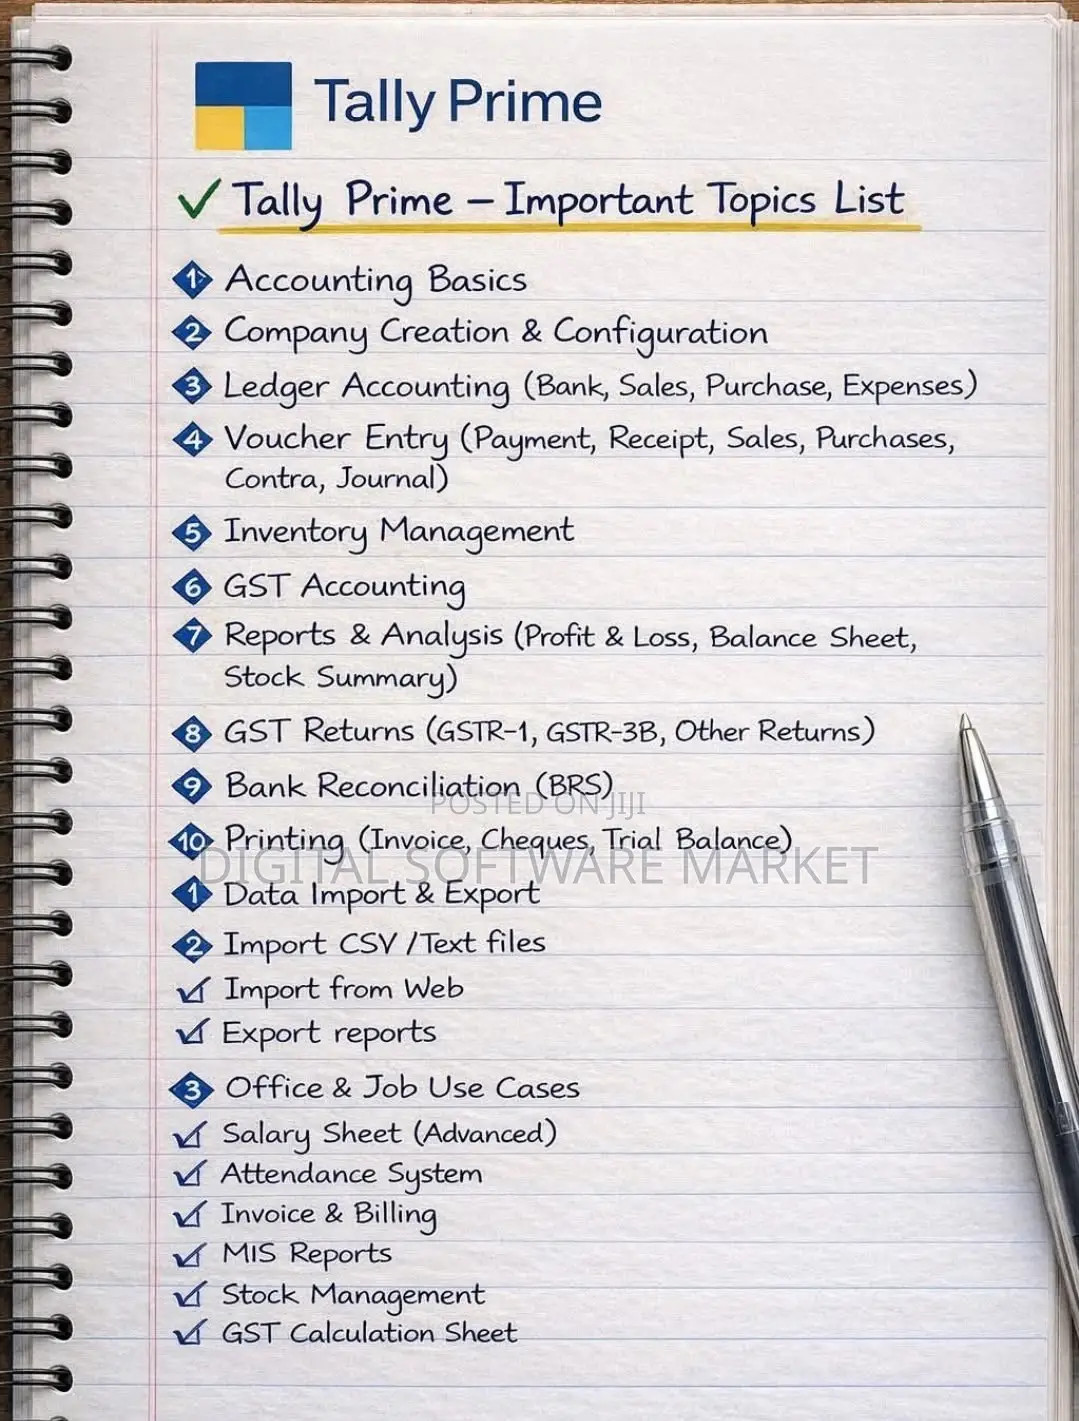 Tally Prime
✓ Tally Prime – Important Topics List
1 Accounting Basics
2 Company Creation & Configuration
3 Ledger Accounting (Bank, Sales, Purchase, Expenses)
4 Voucher Entry (Payment, Receipt, Sales, Purchases,
Contra, Journal)
5 Inventory Management
6 GST Accounting
7 Reports & Analysis (Profit & Loss, Balance Sheet,
Stock Summary)
8 GST Returns (GSTR-1, GSTR-3B, Other Returns)
9 Bank Reconciliation (BRS)
POSTED ON JIJI
10 Printing (Invoice, Cheques, Trial Balance)
DIGITAL SOFTWARE MARKET
1 Data Import & Export
2 Import CSV /Text files
Import from Web
Export reports
3 Office & Job Use Cases
Salary Sheet (Advanced)
Attendance System
Invoice & Billing
MIS Reports
Stock Management
GST Calculation Sheet